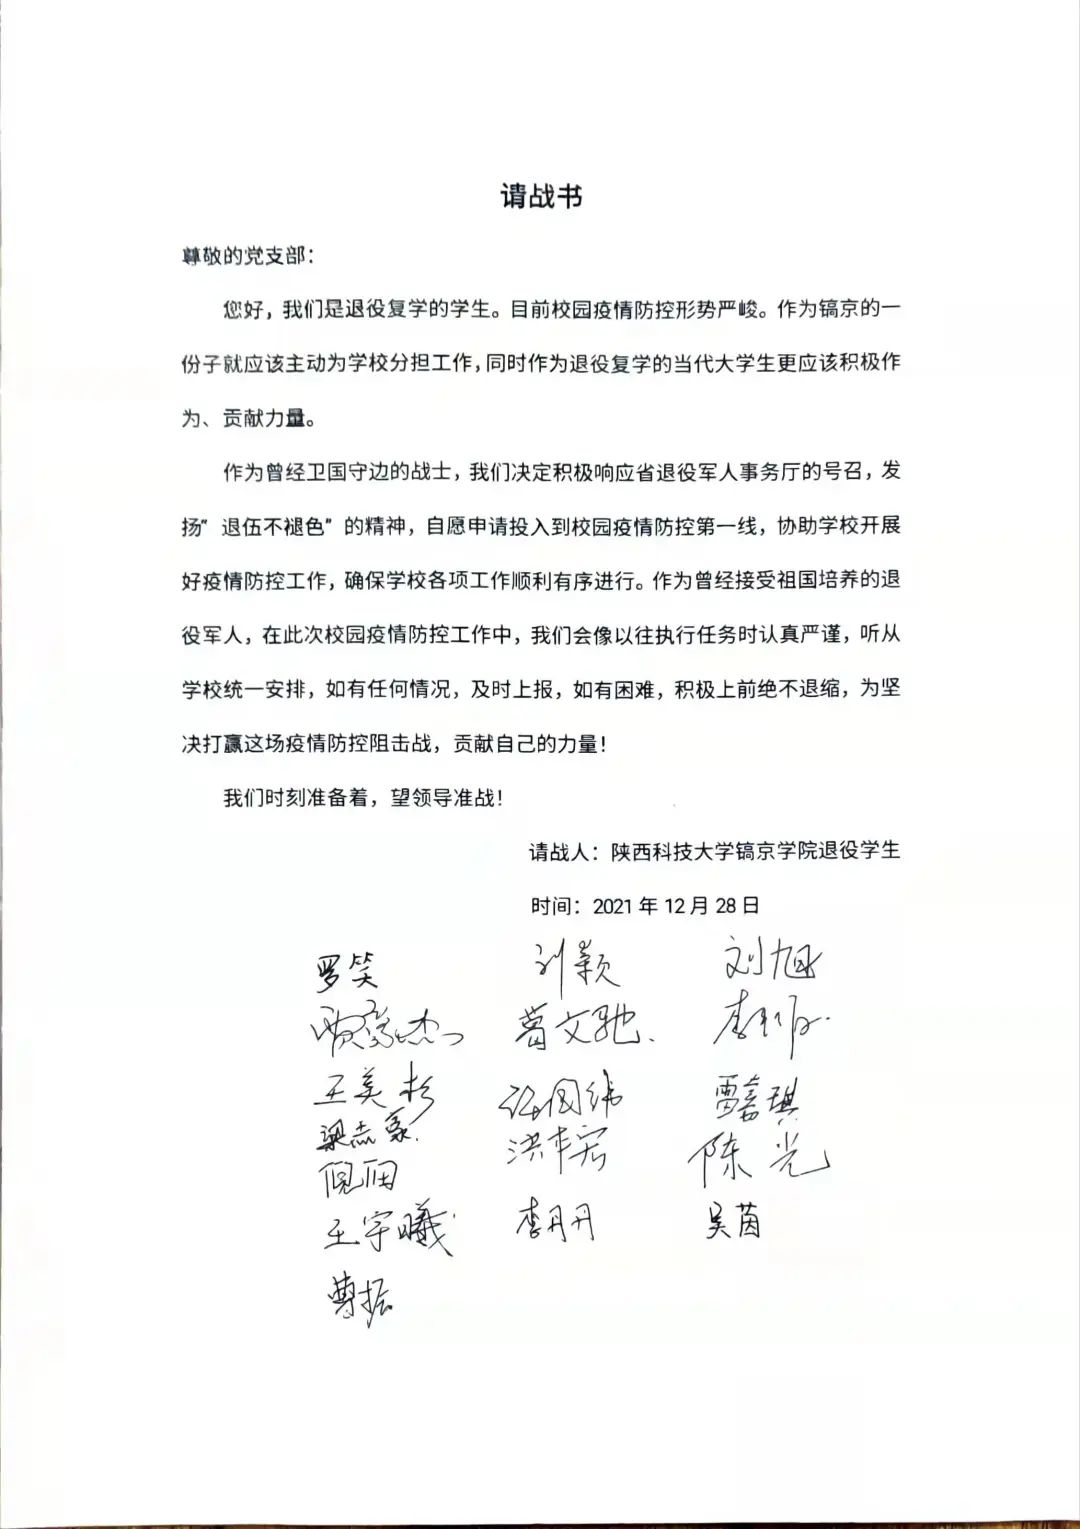 请战书
尊敬的党支部：
您好，我们是退役复学的学生。目前校园疫情防控形势严峻。作为镐京的一
份子就应该主动为学校分担工作，同时作为退役复学的当代大学生更应该积极作
为、贡献力量。
作为曾经卫国守边的战士，我们决定积极响应省退役军人事务厅的号召，发
扬“退伍不褪色”的精神，自愿申请投入到校园疫情防控第一线，协助学校开展
好疫情防控工作，确保学校各项工作顺利有序进行。作为曾经接受祖国培养的退
役军人，在此次校园疫情防控工作中，我们会像以往执行任务时认真严谨，听从
学校统一安排，如有任何情况，及时上报，如有困难，积极上前绝不退缩，为坚
决打赢这场疫情防控阻击战，贡献自己的力量！
我们时刻准备着，望领导准战！
请战人：陕西科技大学镐京学院退役学生
时间：2021 年 12 月 28 日
罗笑 刘颖 刘旭
葛文驰
王美杉 雷嘉琪
梁志豪 洪丰宏 陈光
王宇曦 李丹丹 吴茵
曹振